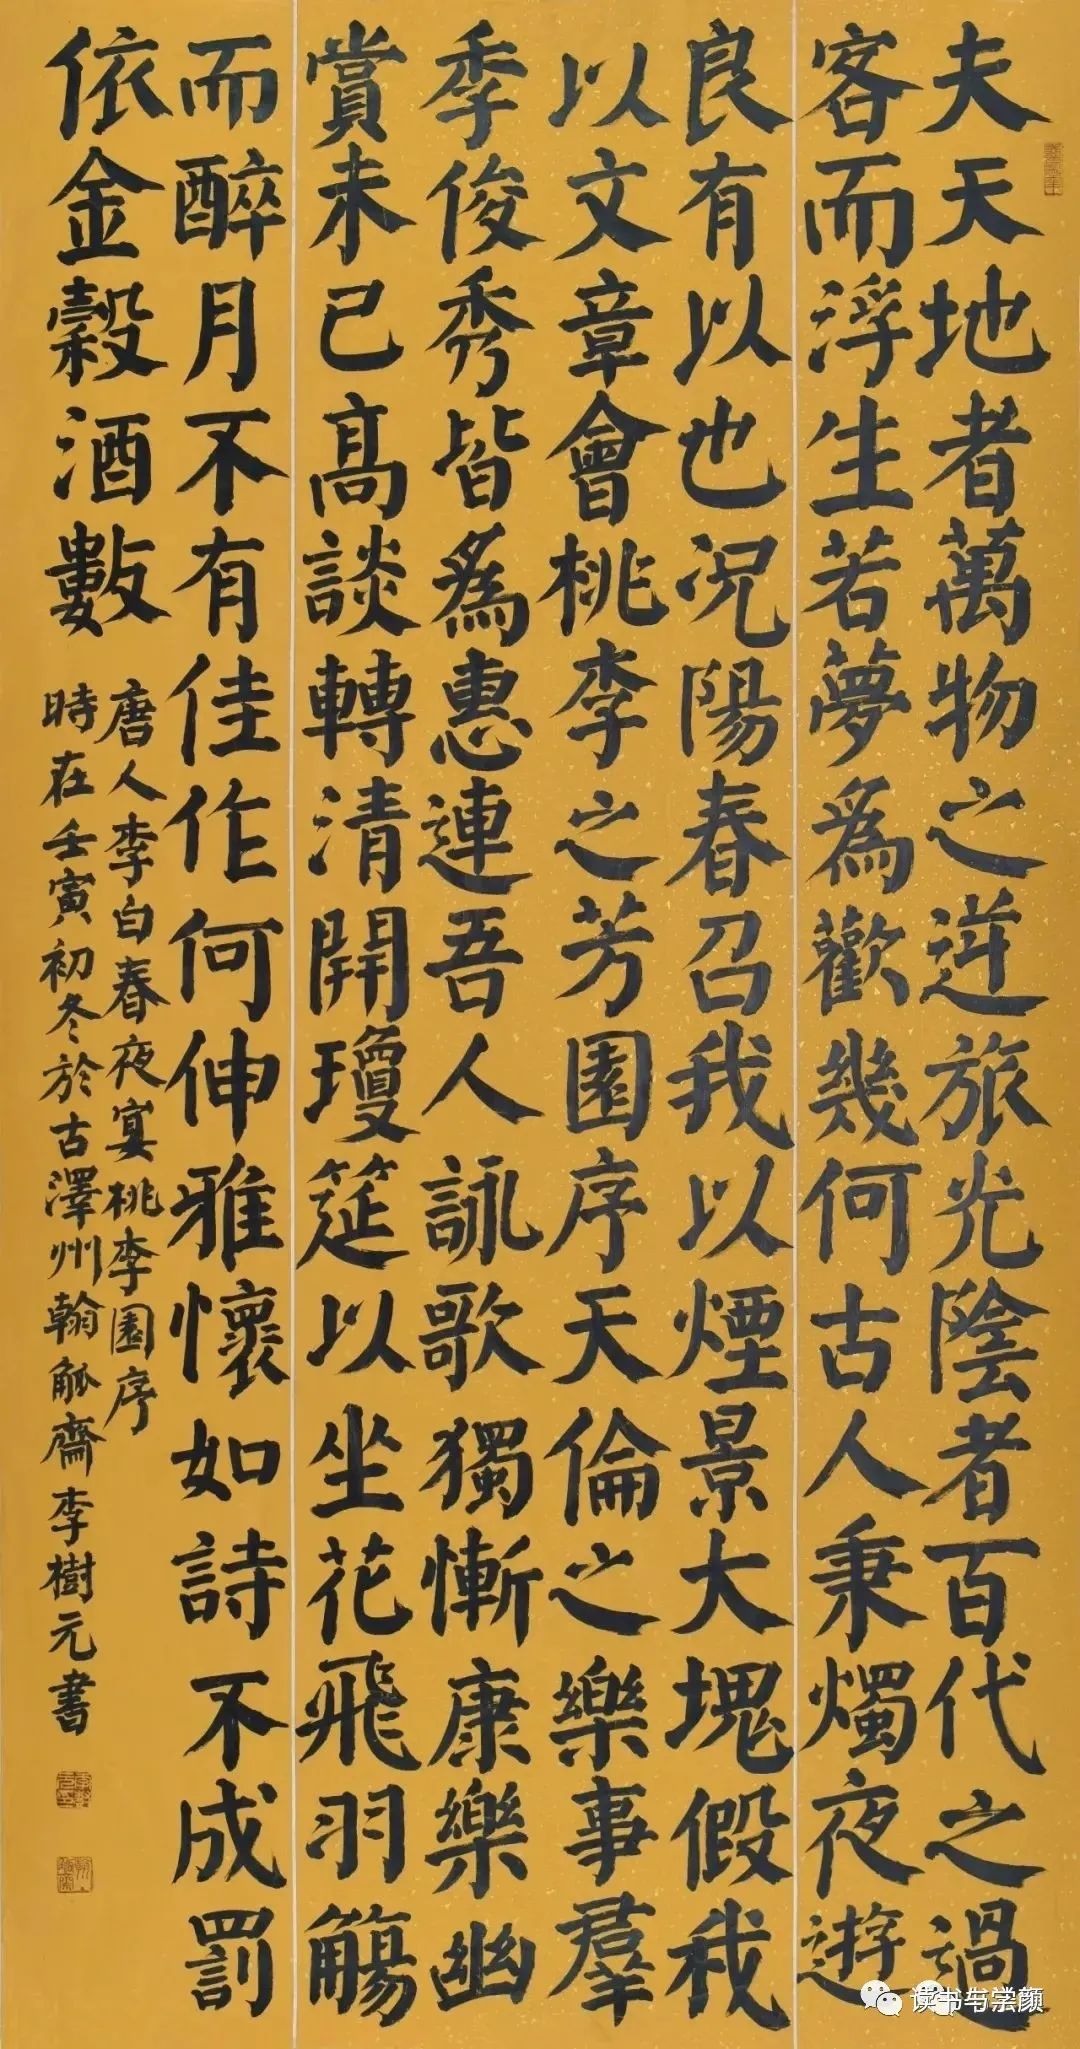 夫天地者萬物之逆旅光陰者百代之過
客而浮生若夢爲歡幾何古人秉燭夜遊
良有以也况陽春召我以煙景大塊假我
以文章會桃李之芳園序天倫之樂事羣
季俊秀皆爲惠連吾人詠歌獨慚康樂幽
賞未已髙談轉清開瓊筵以坐花飛羽觴
而醉月不有佳作何伸雅懷如詩不成罰
依金穀酒數
唐人李白春夜宴桃李園序
時在壬寅初冬於古澤州翰觚齋李樹元書
读书与学颜